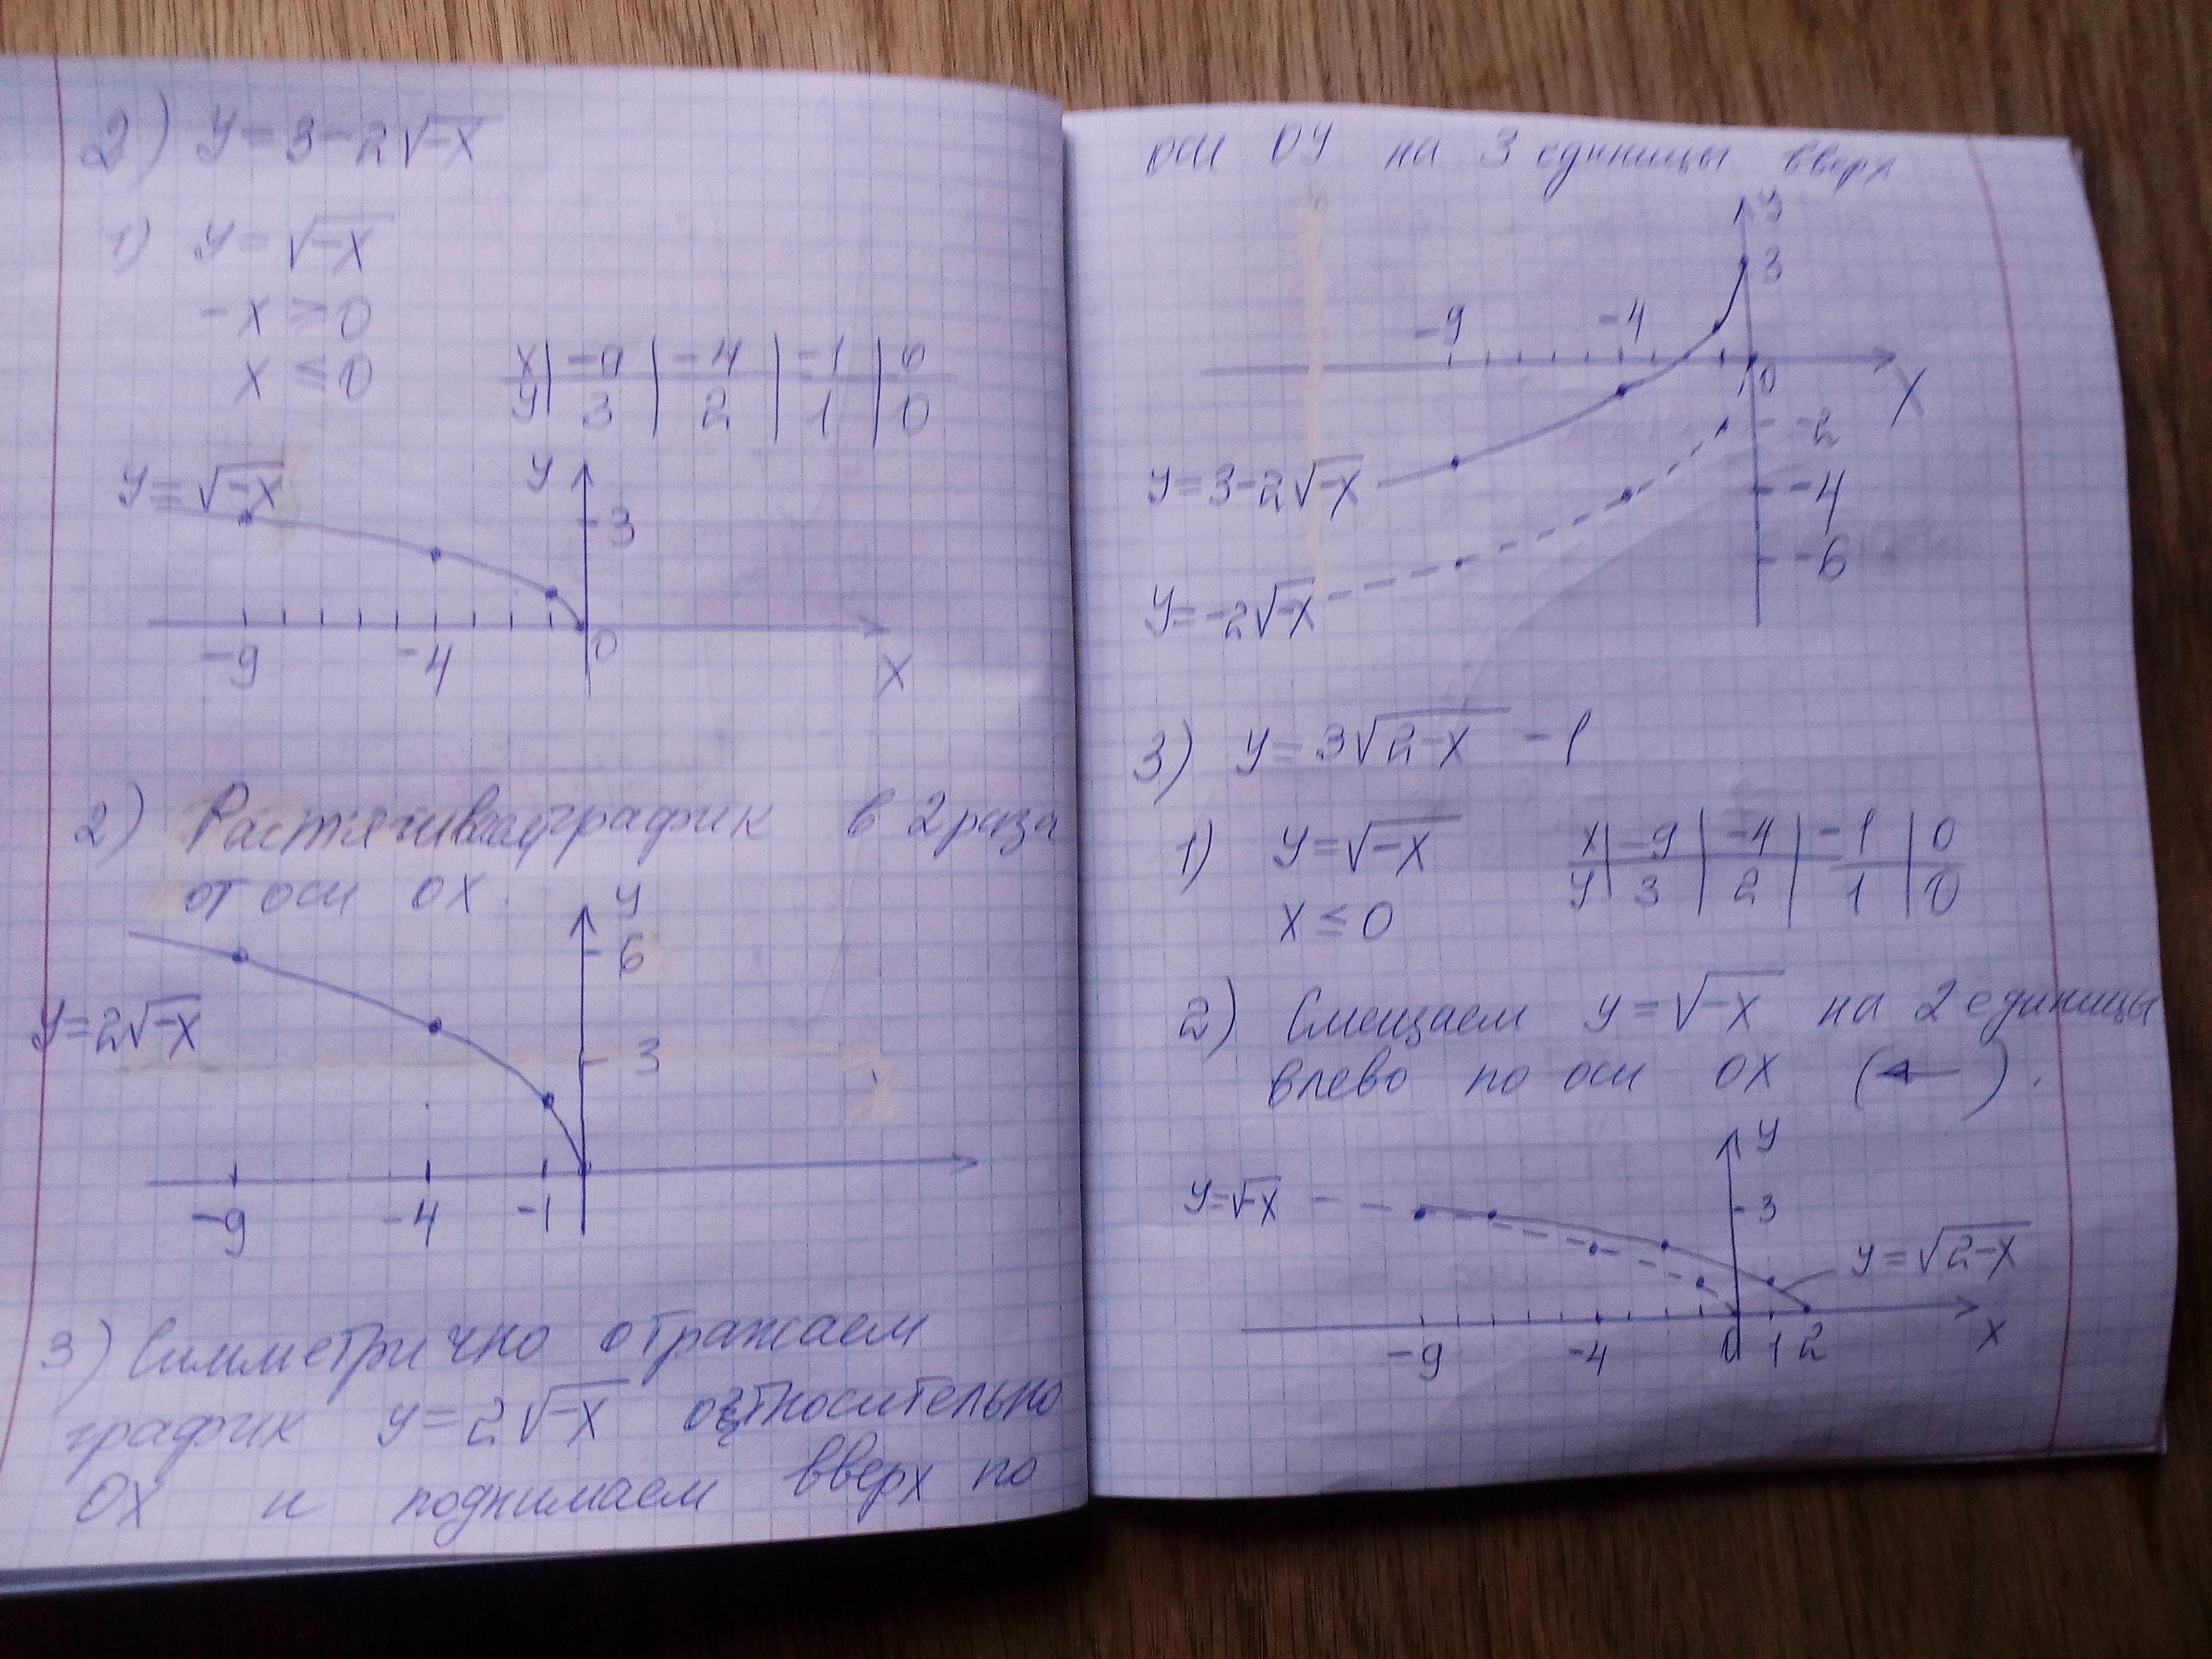 2) y=3-2√-x
1) y=√-x
-x ≥ 0
x ≤ 0
x | -9 | -4 | -1 | 0
y | 3 | 2 | 1 | 0
y=√-x
y
3
-9 -4 0
x
2) Растягиваем график в 2 раза
от оси OX.
y
6
y=2√-x
3
-9 -4 -1
3) Симметрично отражаем
график y=2√-x относительно
OX и поднимаем вверх по
оси OY на 3 единицы вверх
y
3
-9 -4
0
x
-2
y=3-2√-x
-4
-6
y=-2√-x
3) y=3√2-x -1
1) y=√-x
x ≤ 0
x | -9 | -4 | -1 | 0
y | 3 | 2 | 1 | 0
2) Смещаем y=√-x на 2 единицы
влево по оси OX (←).
y
y=√-x
3
y=√2-x
-9 -4 0 1 2
x